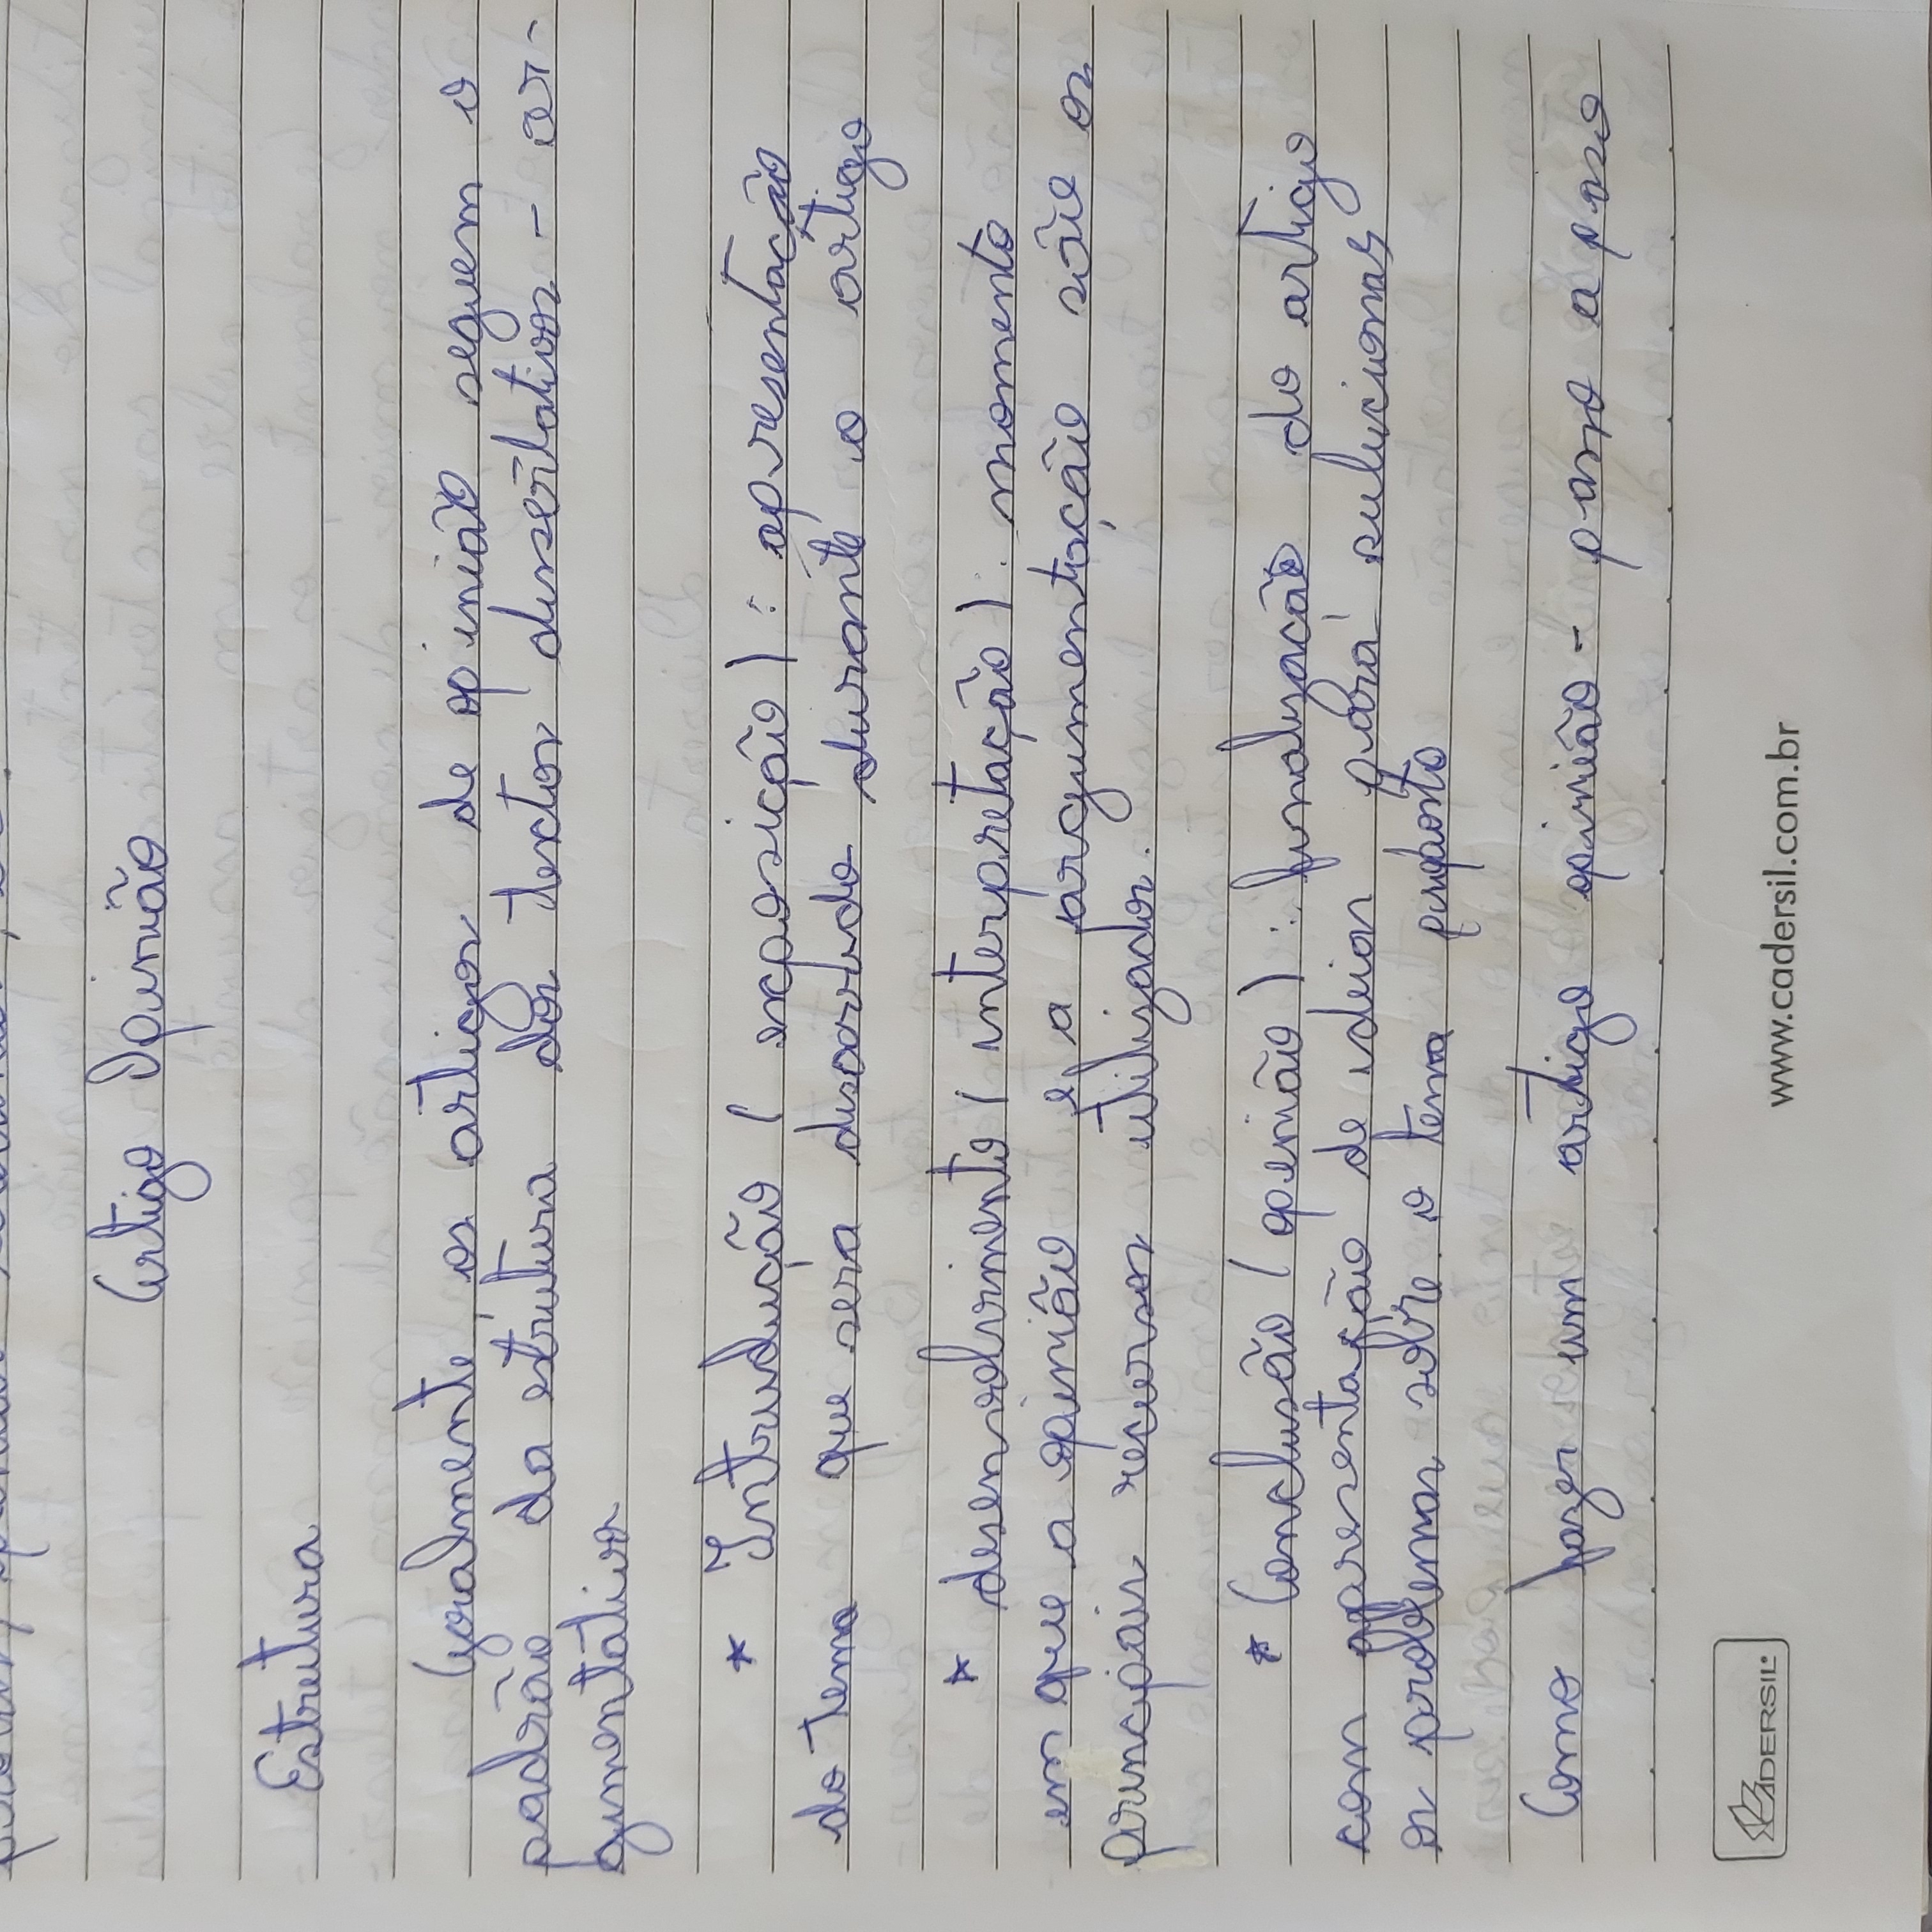 Artigo Opinião
Estrutura
Geralmente, os artigos de opinião seguem o
padrão da estrutura dos textos dissertativos - ar-
gumentativa
* Intrudução (exposição) : apresentação
do tema que será discorrido durante o artigo
* desenvolvimento (interpretação) : momento
em que a opinião e a argumentação são os
principais recursos utilizados.
* Conclusão (opinião) : finalização do artigo
com apresentação de ideias para solucionas
os problemas sobre o tema proposto
Como fazer um artigo opinião - passo a passo
CADERSIL
www.cadersil.com.br